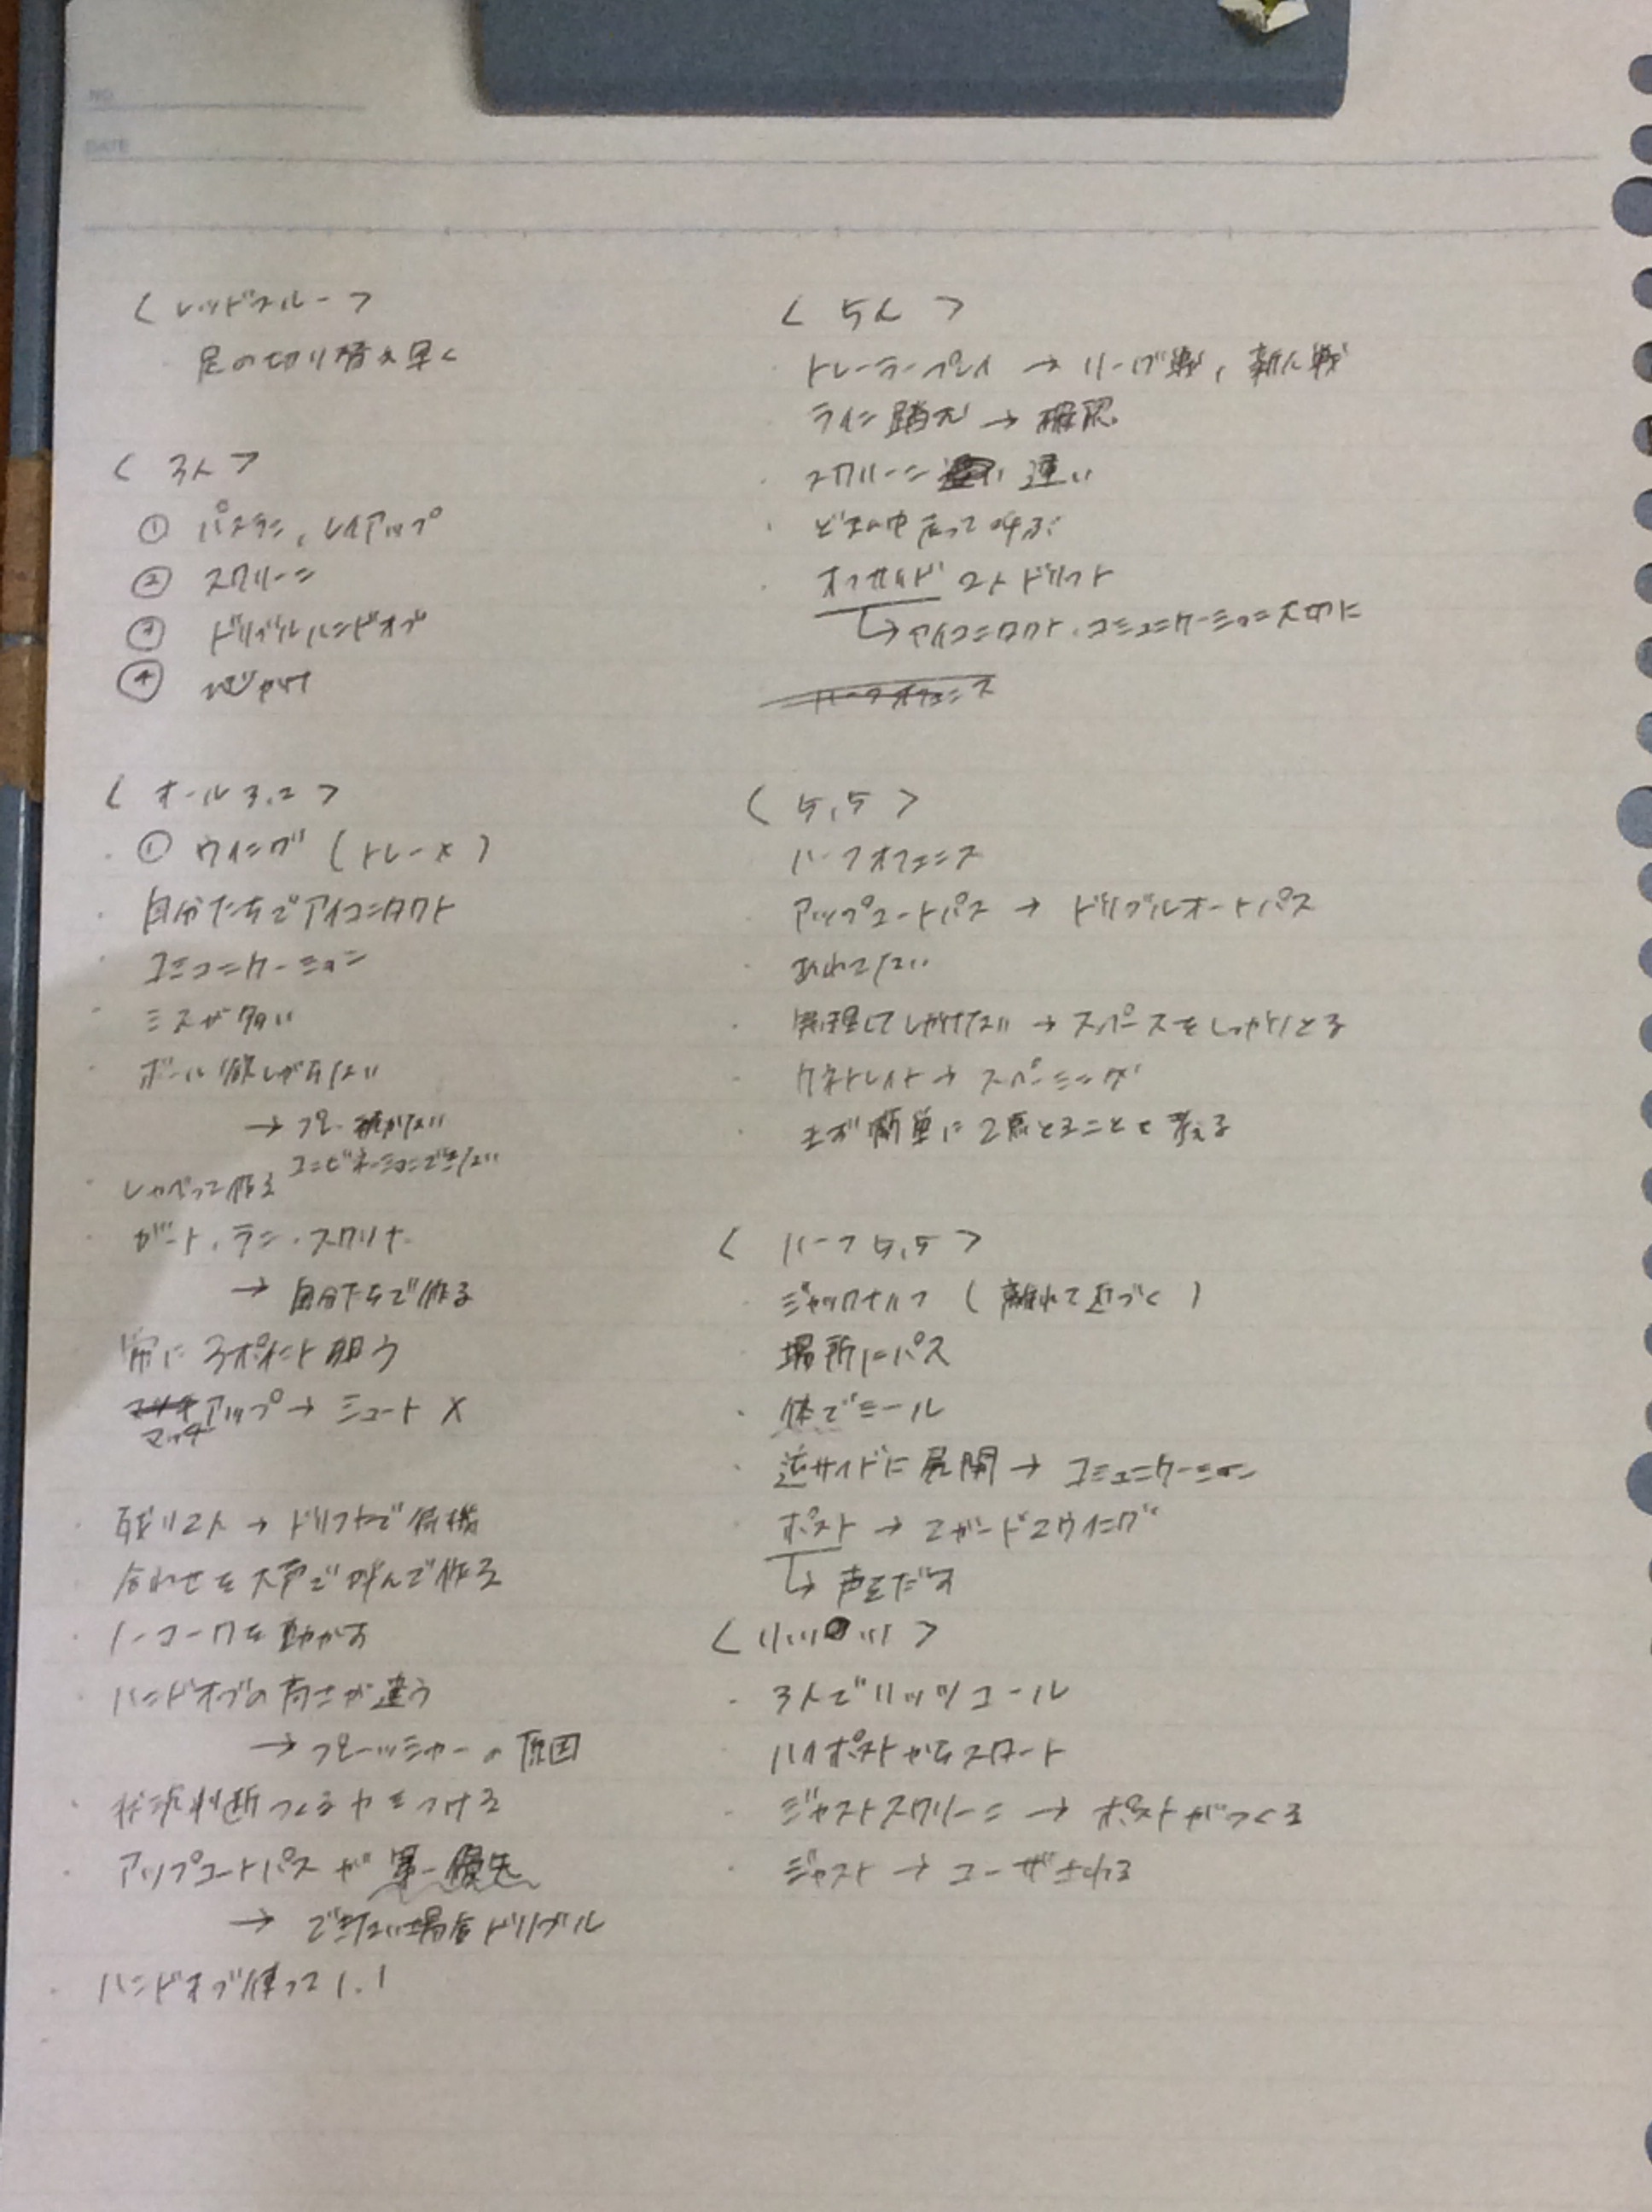 NO.
DATE
< レッドブルー >
足の切り替え早く
< 3人 >
① パスラン、レイアップ
② スクリーン
③ ドリブルハンドオフ
④
< オール3.2 >
・① ウイング (トレー×)
・自分たちでアイコンタクト
・コミュニケーション
・ミスが多い
・ボール欲しがらない
→ プレー続かない
コンビネーションできない
・しゃべって作る
ガード・ラン・スクリナー
→ 自分たちで作る
常に 3ポイント狙う
マッチアップ → シュート ×
・残り2人 → ドリフトで待機
・合わせを大声で呼んで作る
・ノーマークを動かす
・ハンドオフの高さが違う
→ プレッシャーの原因
・状況判断つくる 力をつける
・アップコートパスが第一優先
→ できない場合ドリブル
・ハンドオフ使って1.1
< 5人 >
トレーラープレイ → リーグ戦、新人戦
ライン踏んだ → 確認
・スクリーン 遅い
・どまん中走って呼ぶ
・オフサイド 2人ドリフト
→ アイコンタクト・コミュニケーション大切に
< 5.5 >
ハーフオフェンス
アップコートパス → ドリブルオートパス
・無理してしかけない → スペースをしっかりとる
・ペネトレイト → スペーシング
・まず簡単に2点とることを考える
< ハーフ5.5 >
ジャックナイフ (離れて近づく)
場所にパス
・体でシール
・逆サイドに展開 → コミュニケーション
・ポスト → 2ガード2ウイング
→ 声をだす
< リッツ >
・3人でリッツコール
ハイポストからスタート
・ジャストスクリーン → ポストがつくる
・ジャスト → ユーザされる